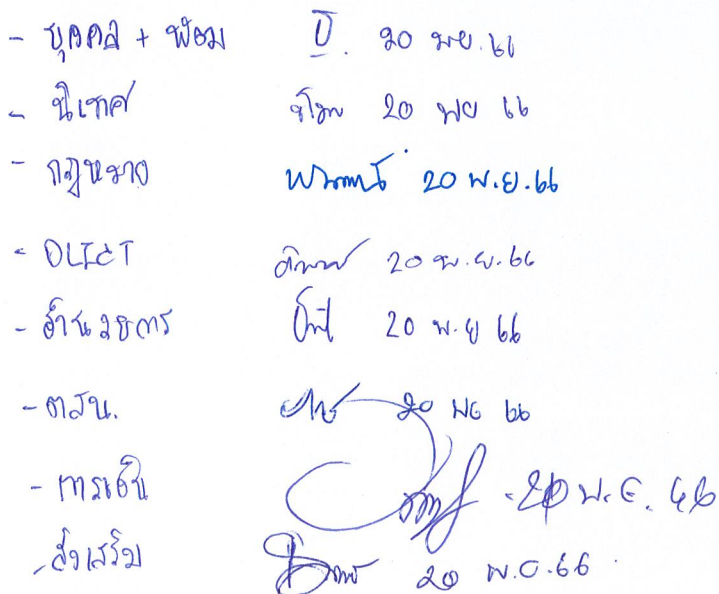 - บุคคล + พัฒน ป. 20 พย. 66
- นิเทศ 20 พย 66
- กฎหมาย 20 พ.ย. 66
- DLICT 20 พ.ย. 66
- อำนวยการ 20 พ.ย 66
- ตสน. 20 พย 66
- การเงิน 20 พ.ย. 66
- ส่งเสริม 20 พ.ย. 66